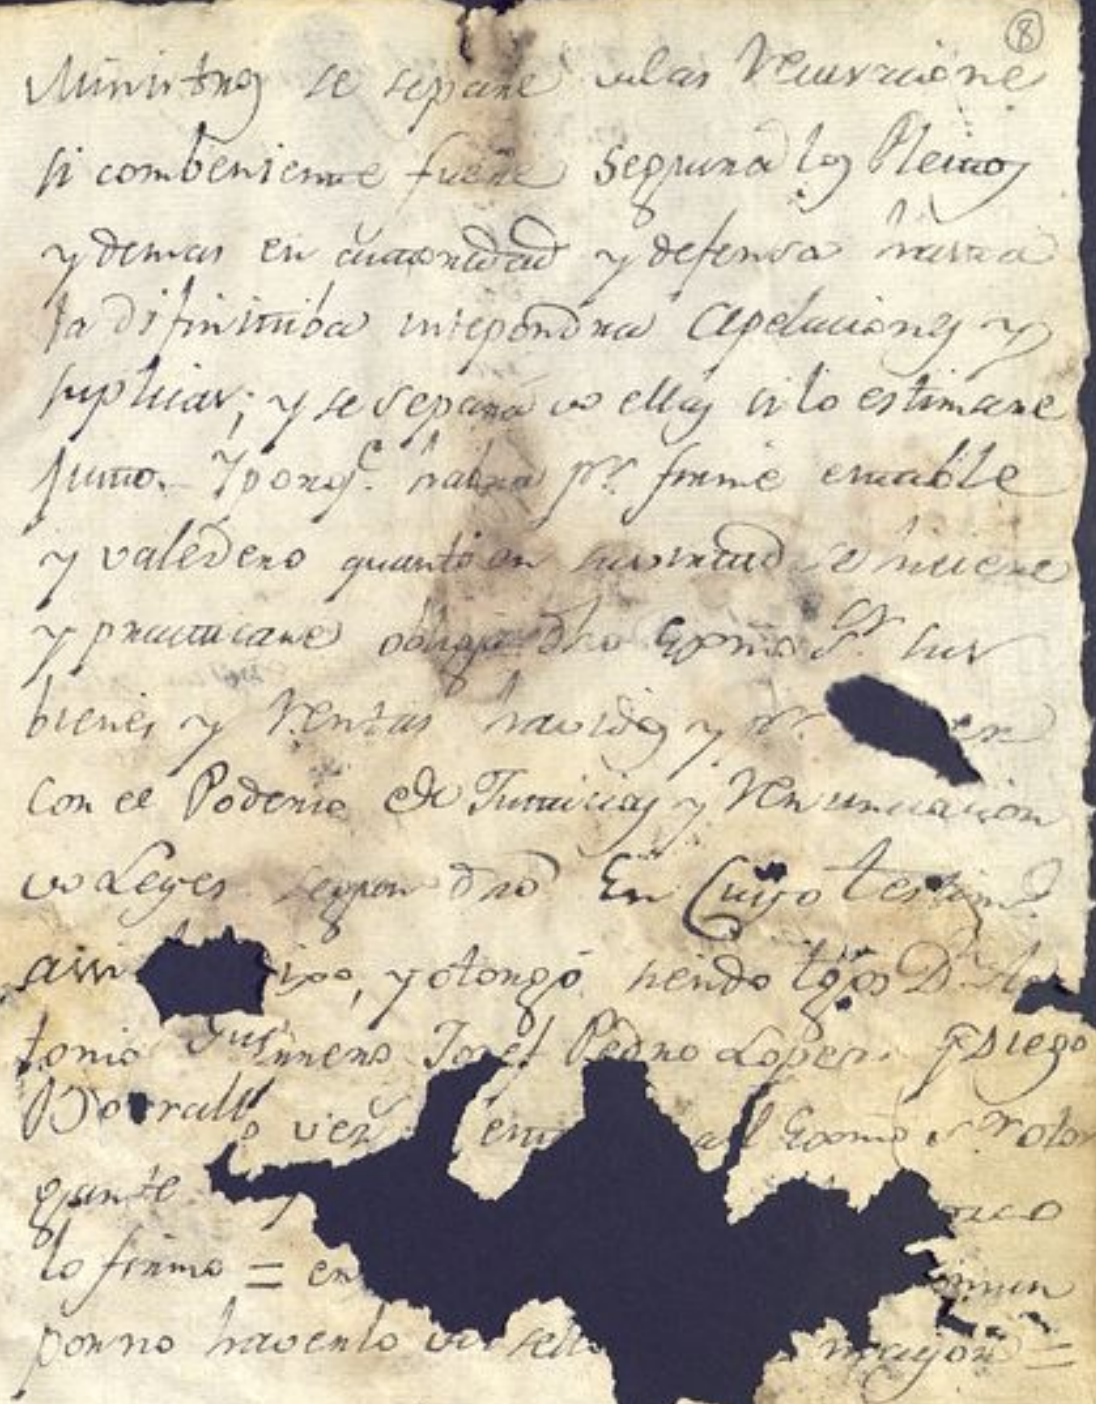 8
Ministros se separe de las Recusaciones
si combeniente fuere seguira los Pleitos
y demas en autoridad y defensa hasta
la difinitiba intepondra Apelaciones y
suplicas; y se separara de ellas si lo estimare
justo. Y porq.e habra p.r firme estable
y valedero quanto en su virtud se hiciere
y practicare obliga dho Exmo S.or sus
bienes y Rentas havidos y p.r er
con el Poderio de Justicias y Renunciacion
de Leyes segun dro En Cuyo testim.o
assi ixo, y otorgó siendo tgos D.n An
tonio Josef Pedro Lopez y Diego
Borrallo vez al Exmo s.or otor
gante
lo firmo = en comun
por no haverlo de sello mayor =